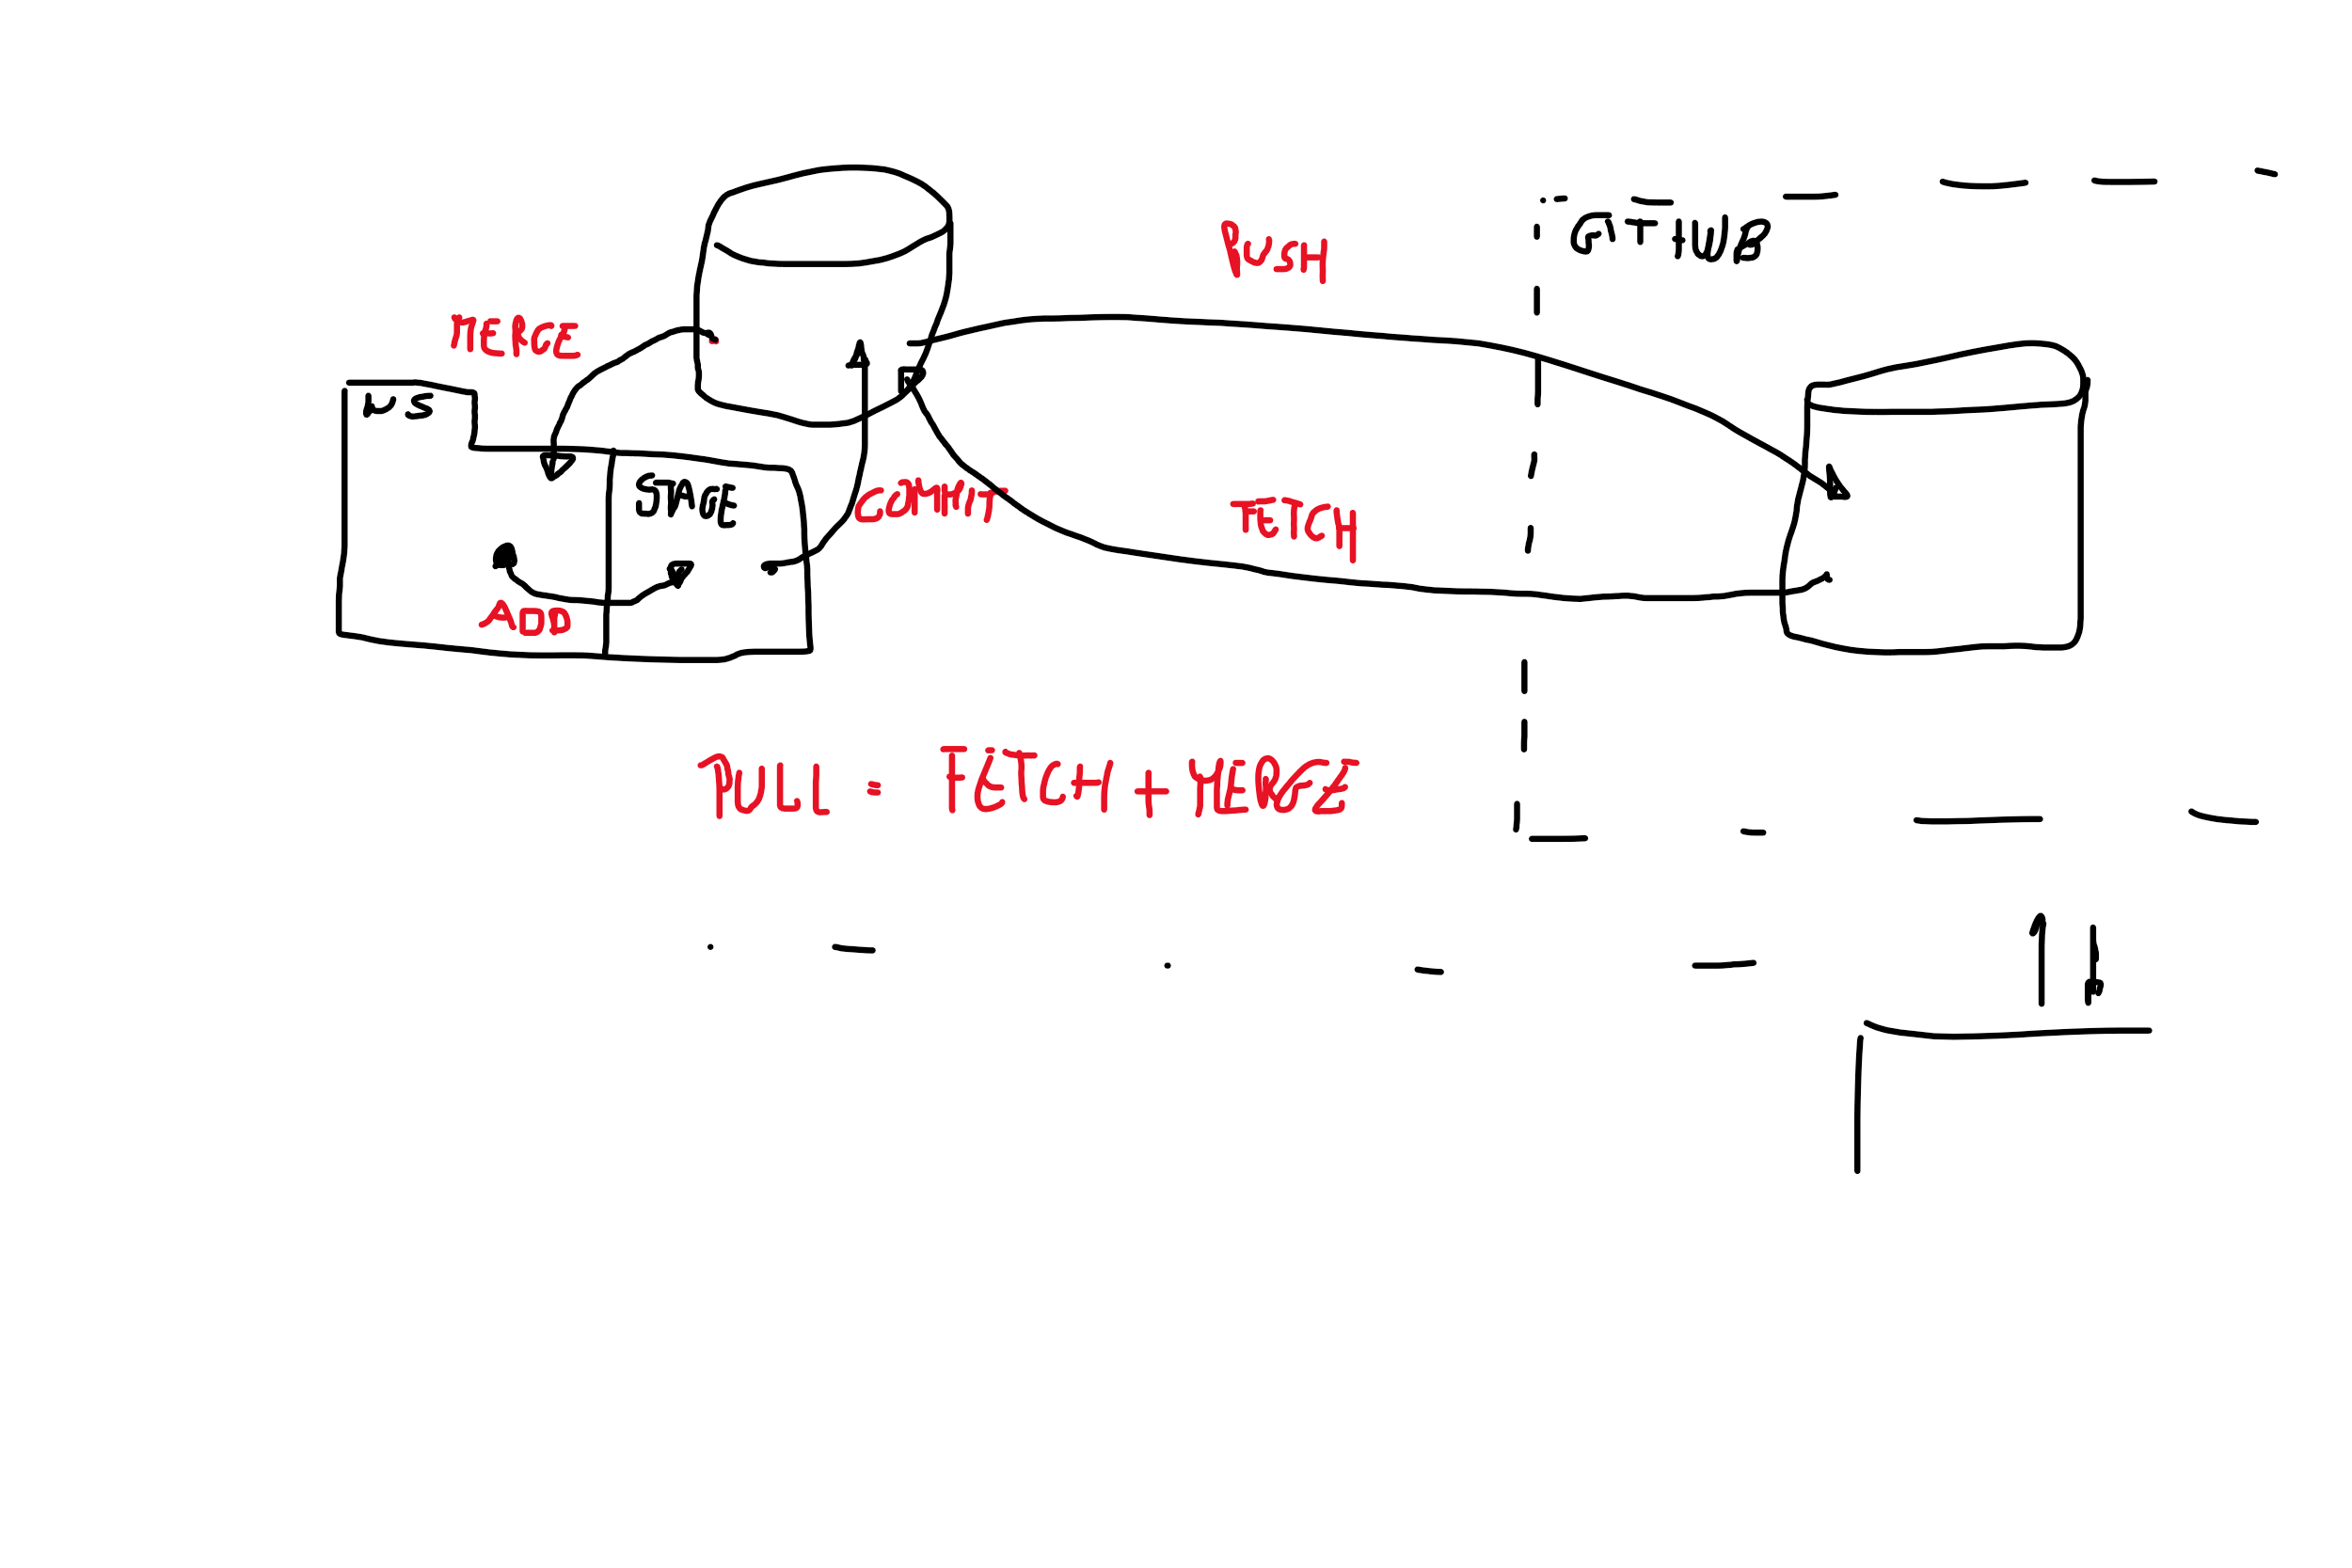 GITHUB
PUSH
MERGE
WS
STAGE
COMMIT
FETCH
ADD
PULL = FETCH + MERGE